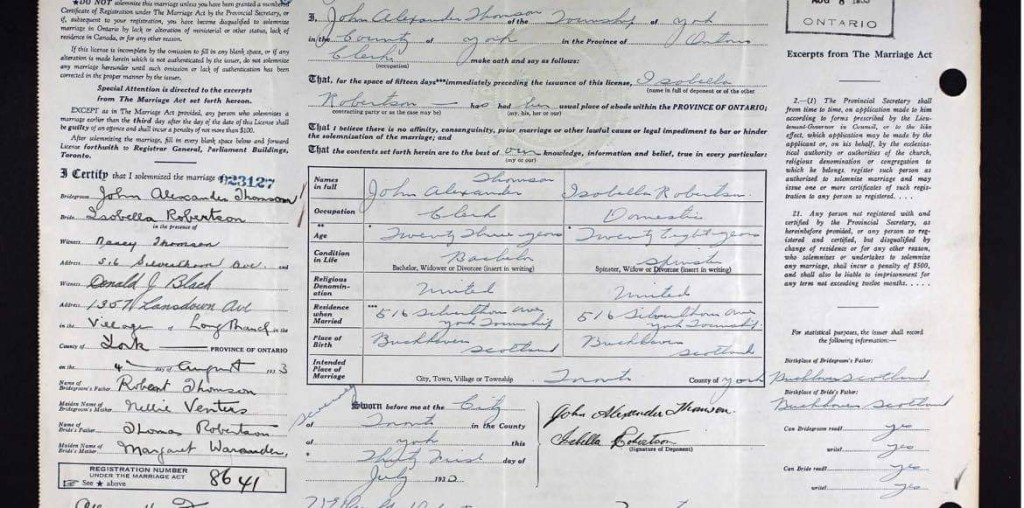 ★DO NOT solemnize this marriage unless you have been granted a numbered
Certificate of Registration under The Marriage Act by the Provincial Secretary, or
if, subsequently to your registration, you have become disqualified to solemnize
marriage in Ontario by lack of ministerial or other status, lack of
residence in Canada, or for any other reason.
If this license is incomplete by the omission to fill in any blank space, or if any
alteration is made herein which is not authenticated by the issuer, do not solemnize
any marriage hereunder until such omission or lack of authentication has been
corrected in the proper manner by the issuer.
Special Attention is directed to the excerpts
from The Marriage Act set forth hereon.
EXCEPT as in The Marriage Act provided, any person who solemnizes a
marriage earlier than the third day after the date of this License shall
be guilty of an offence and shall incur a penalty of not more than $100.
After solemnizing the marriage, fill in every blank space below and forward
License forthwith to Registrar General, Parliament Buildings,
Toronto.
I Certify that I solemnized the marriage of
023127
Bridegroom John Alexander Thomson
Bride Isobella Robertson
in the presence of
Witness Nancy Thomson
Address 516 Silverthorn Ave and
Witness Donald J Black
Address 1357 Lansdown Ave
in the Village of Long Branch in the
County of York PROVINCE OF ONTARIO
on the 4 day of August 1933
Name of Bridegroom's Father Robert Thomson
Maiden Name of Bridegroom's Mother Nellie Venters
Name of Bride's Father Thomas Robertson
Maiden Name of Bride's Mother Margaret
REGISTRATION NUMBER
UNDER THE MARRIAGE ACT
See ★ above
8641
I, John Alexander Thomson of the Township of York
in the County of York in the Province of Ontario
Clerk make oath and say as follows:
(occupation)
That, for the space of fifteen days***immediately preceding the issuance of this license, Isobella
(name in full of deponent or of the other
Robertson has had her usual place of abode within the PROVINCE OF ONTARIO;
contracting party as the case may be) (my, his, her or our)
That I believe there is no affinity, consanguinity, prior marriage or other lawful cause or legal impediment to bar or hinder
the solemnization of the marriage; and
That the contents set forth herein are to the best of our knowledge, information and belief, true in every particular:
(my or our)
Names in full John Alexander Thomson Isobella Robertson
Occupation Clerk Domestic
** Age * Twenty Three years * Twenty Eight years
Condition in Life Bachelor Spinster
Bachelor, Widower or Divorcee (insert in writing) Spinster, Widow or Divorcee (insert in writing)
Religious Denomination United United
Residence when Married *** 516 Silverthorn Ave, York Township 516 Silverthorn Ave, York Township
Place of Birth Buckhaven Scotland Buckhaven Scotland
Intended Place of Marriage Toronto County of York
City, Town, Village or Township
Sworn before me at the City
of Toronto in the County
of York this
Thirty First day of
July 1933
severally
John Alexander Thomson.
Isobella Robertson
(Signature of Deponent)
AUG 8 1933
ONTARIO
Excerpts from The Marriage Act
2.—(1) The Provincial Secretary shall
from time to time, on application made to him
according to forms prescribed by the Lieu-
tenant-Governor in Council, or to the like
effect, which application may be made by the
applicant or, on his behalf, by the ecclesias-
tical authority or authorities of the church,
religious denomination or congregation to
which he belongs, register such person as
authorized to solemnize marriage and may
issue one or more certificates of such regis-
tration to persons so registered. . . . .
21. Any person not registered with and
certified by the Provincial Secretary, as
hereinbefore provided, or any person so reg-
istered and certified, but disqualified by
change of residence or for any other reason,
who solemnizes or undertakes to solemnize
any marriage, shall incur a penalty of $500,
and shall also be liable to imprisonment for
any term not exceeding twelve months. . . . .
For statistical purposes, the issuer shall record
the following information:—
Birthplace of Bridegroom's Father:
Buckhaven Scotland
Birthplace of Bride's Father:
Buckhaven Scotland
Can Bridegroom read? yes
write? yes
Can Bride read? yes
write? yes